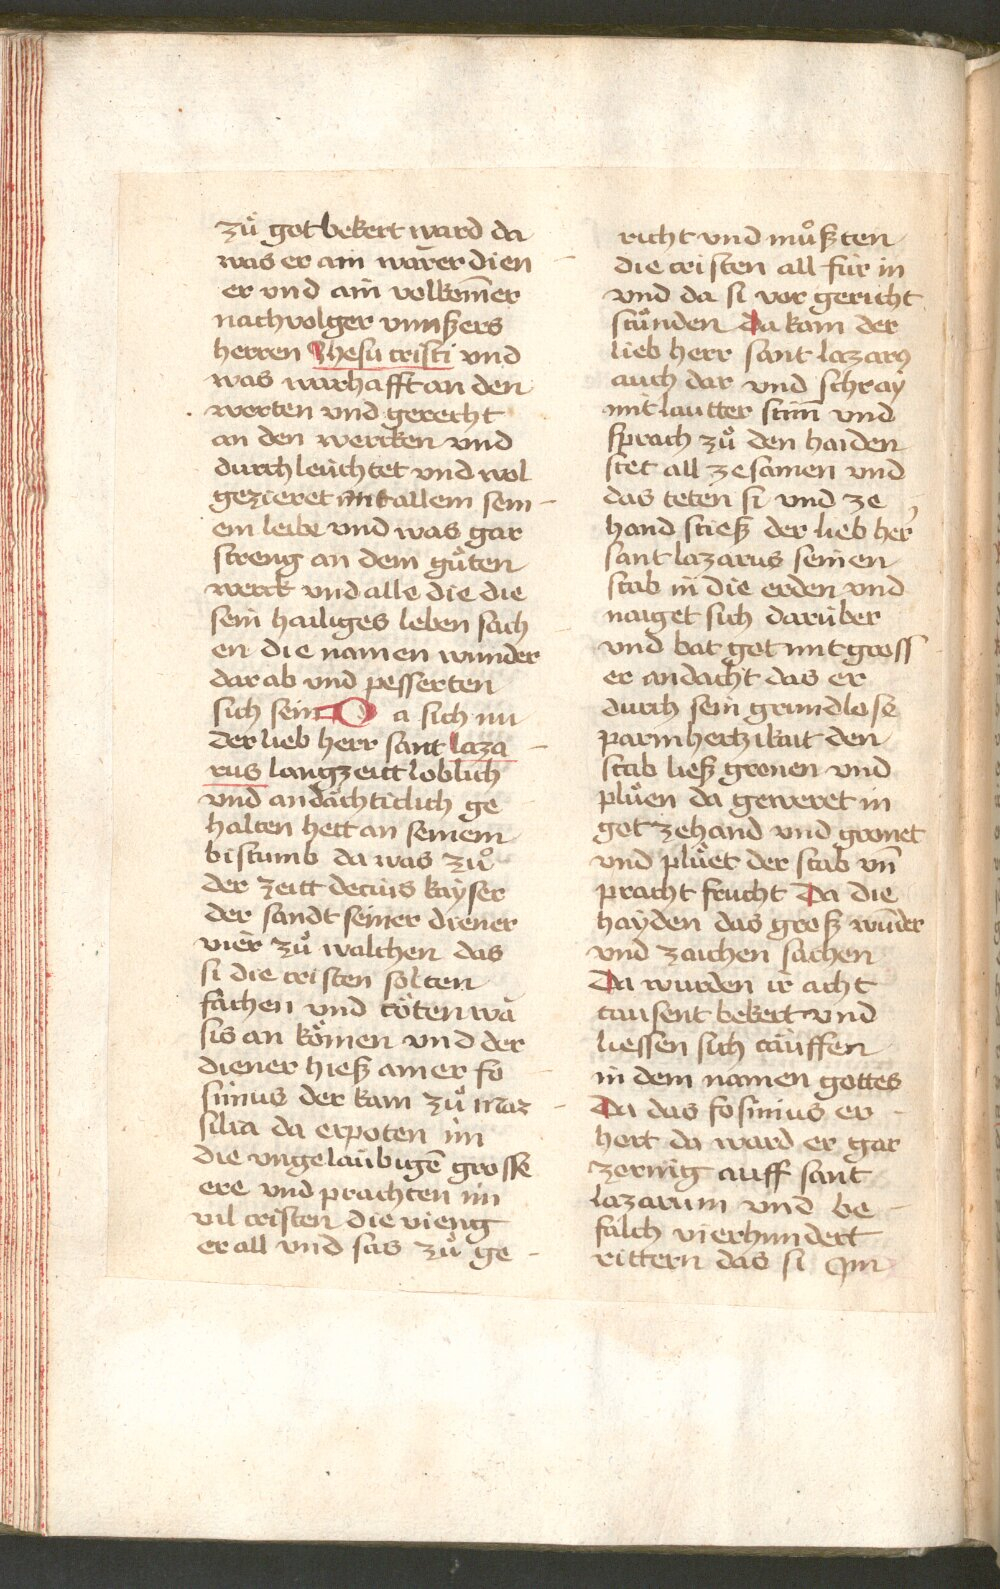 zuͦ got bekert ward da
was er ain warer dien
er und ain volkom̄er
nachvolger vnnsers
herren Jhesu cristi vnd
was warhafft an den
worten vnd gerecht
an den wercken vnd
durchleüchtet vnd wol
gezieret mit allem sein
em leibe vnd was gar
streng an dem guͦten
werck vnd alle die die
sein hailiges leben sach
en die namen wunder
dar ab vnd pesserten
sich sein Da sich nu
der lieb herr sant laza
rus langzeitt loblich
vnd andächticlich ge
halten hett an seinem
bistumb da was zuͦ
der zeitt decius kayser
der sandt seiner diener
vier zuͦ walchen das
si die cristen solten
fachen vnd töten wa
sis an kömen vnd der
diener hieß ainer fo
sinius der kam zuͦ mar
silia da erpoten im
die vngelaübigē grosse
ere vnd prachten im
vil cristen die vieng
er all vnd sas zuͦ ge
richt vnd muͦsten
die cristen all für in
vnd da si vor gericht
stuͦnden da kam der
lieb herr sant lazarꝰ
auch dar vnd schray
mit lautter stim̄ vnd
sprach zuͦ den haiden
stet all zesamen vnd
das teten si vnd ze
hand stieß der lieb her̕
sant lazarus seinen
stab in die erden vnd
naiget sich darüber
vnd bat got mit gross
er andacht das er
durch sein grundlose
parmhertzikait den
stab ließ gronen vnd
plüen da geweret in
got zehand vnd gronet
vnd plüet der stab vn̄
pracht frucht Da die
hayden das groß wunder
vnd zaichen sachen
Da wurden ir acht
tausent bekert vnd
liessen sich tauffen
in dem namen gottes
Da das fosinius er
hort da ward er gar
zornig auff sant
lazarum vnd be
falch vierhundert
rittern das si im